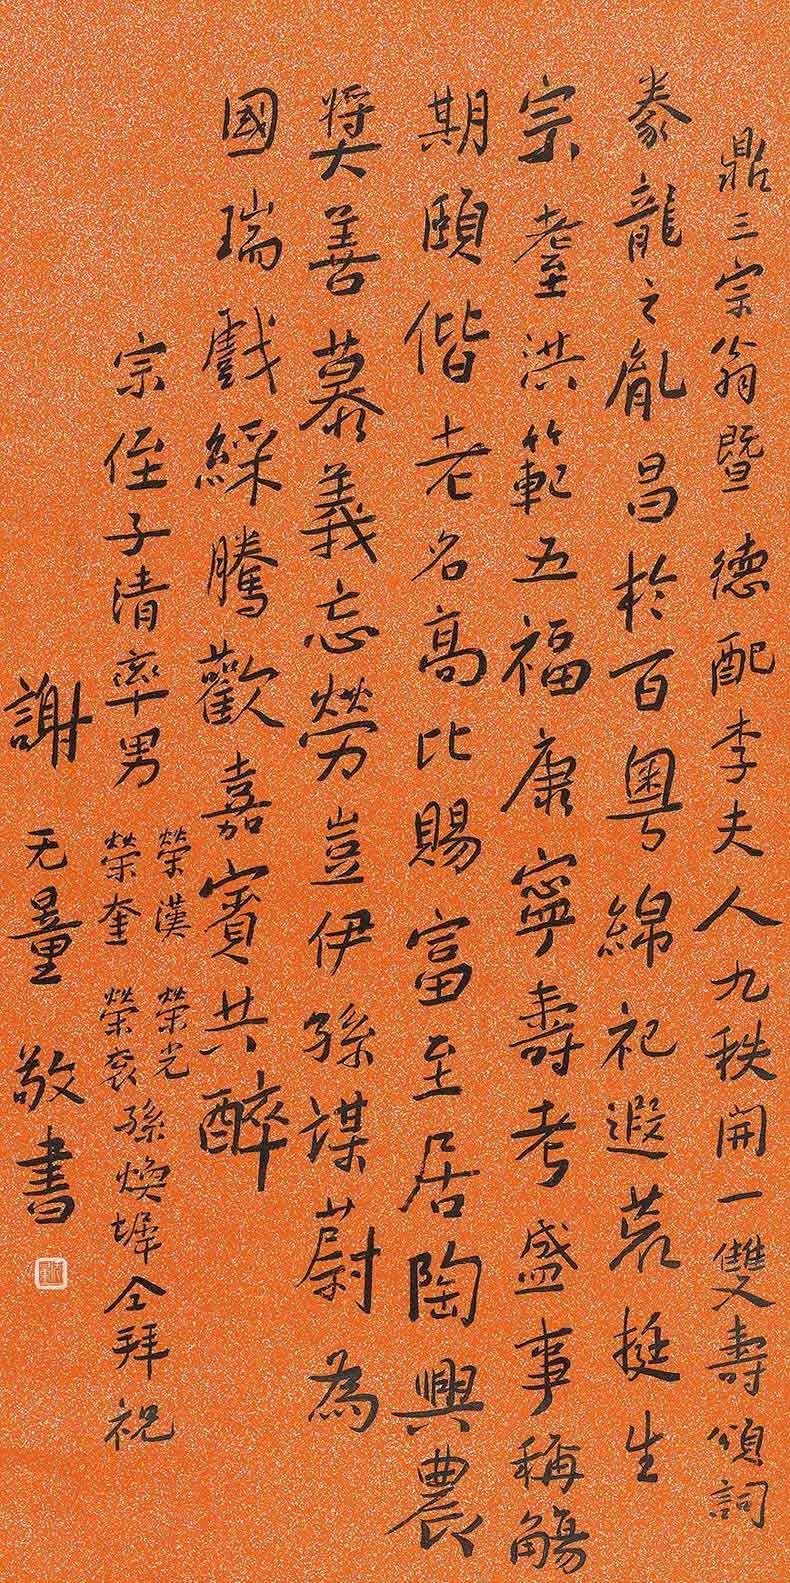 鼎三宗翁暨德配李夫人九秩開一雙壽頌詞
豢龍之胤昌於百粵綿祀遐荒挺生
宗耋洪範五福康寧壽考盛事稱觴
期頤偕老名高比賜富至居陶興農
獎善慕義忘勞豈伊孫謀蔚為
國瑞戲綵騰歡嘉賓共醉
宗侄子清率男榮漢榮光榮奎榮袞孫煥墀仝拜祝
謝无量敬書